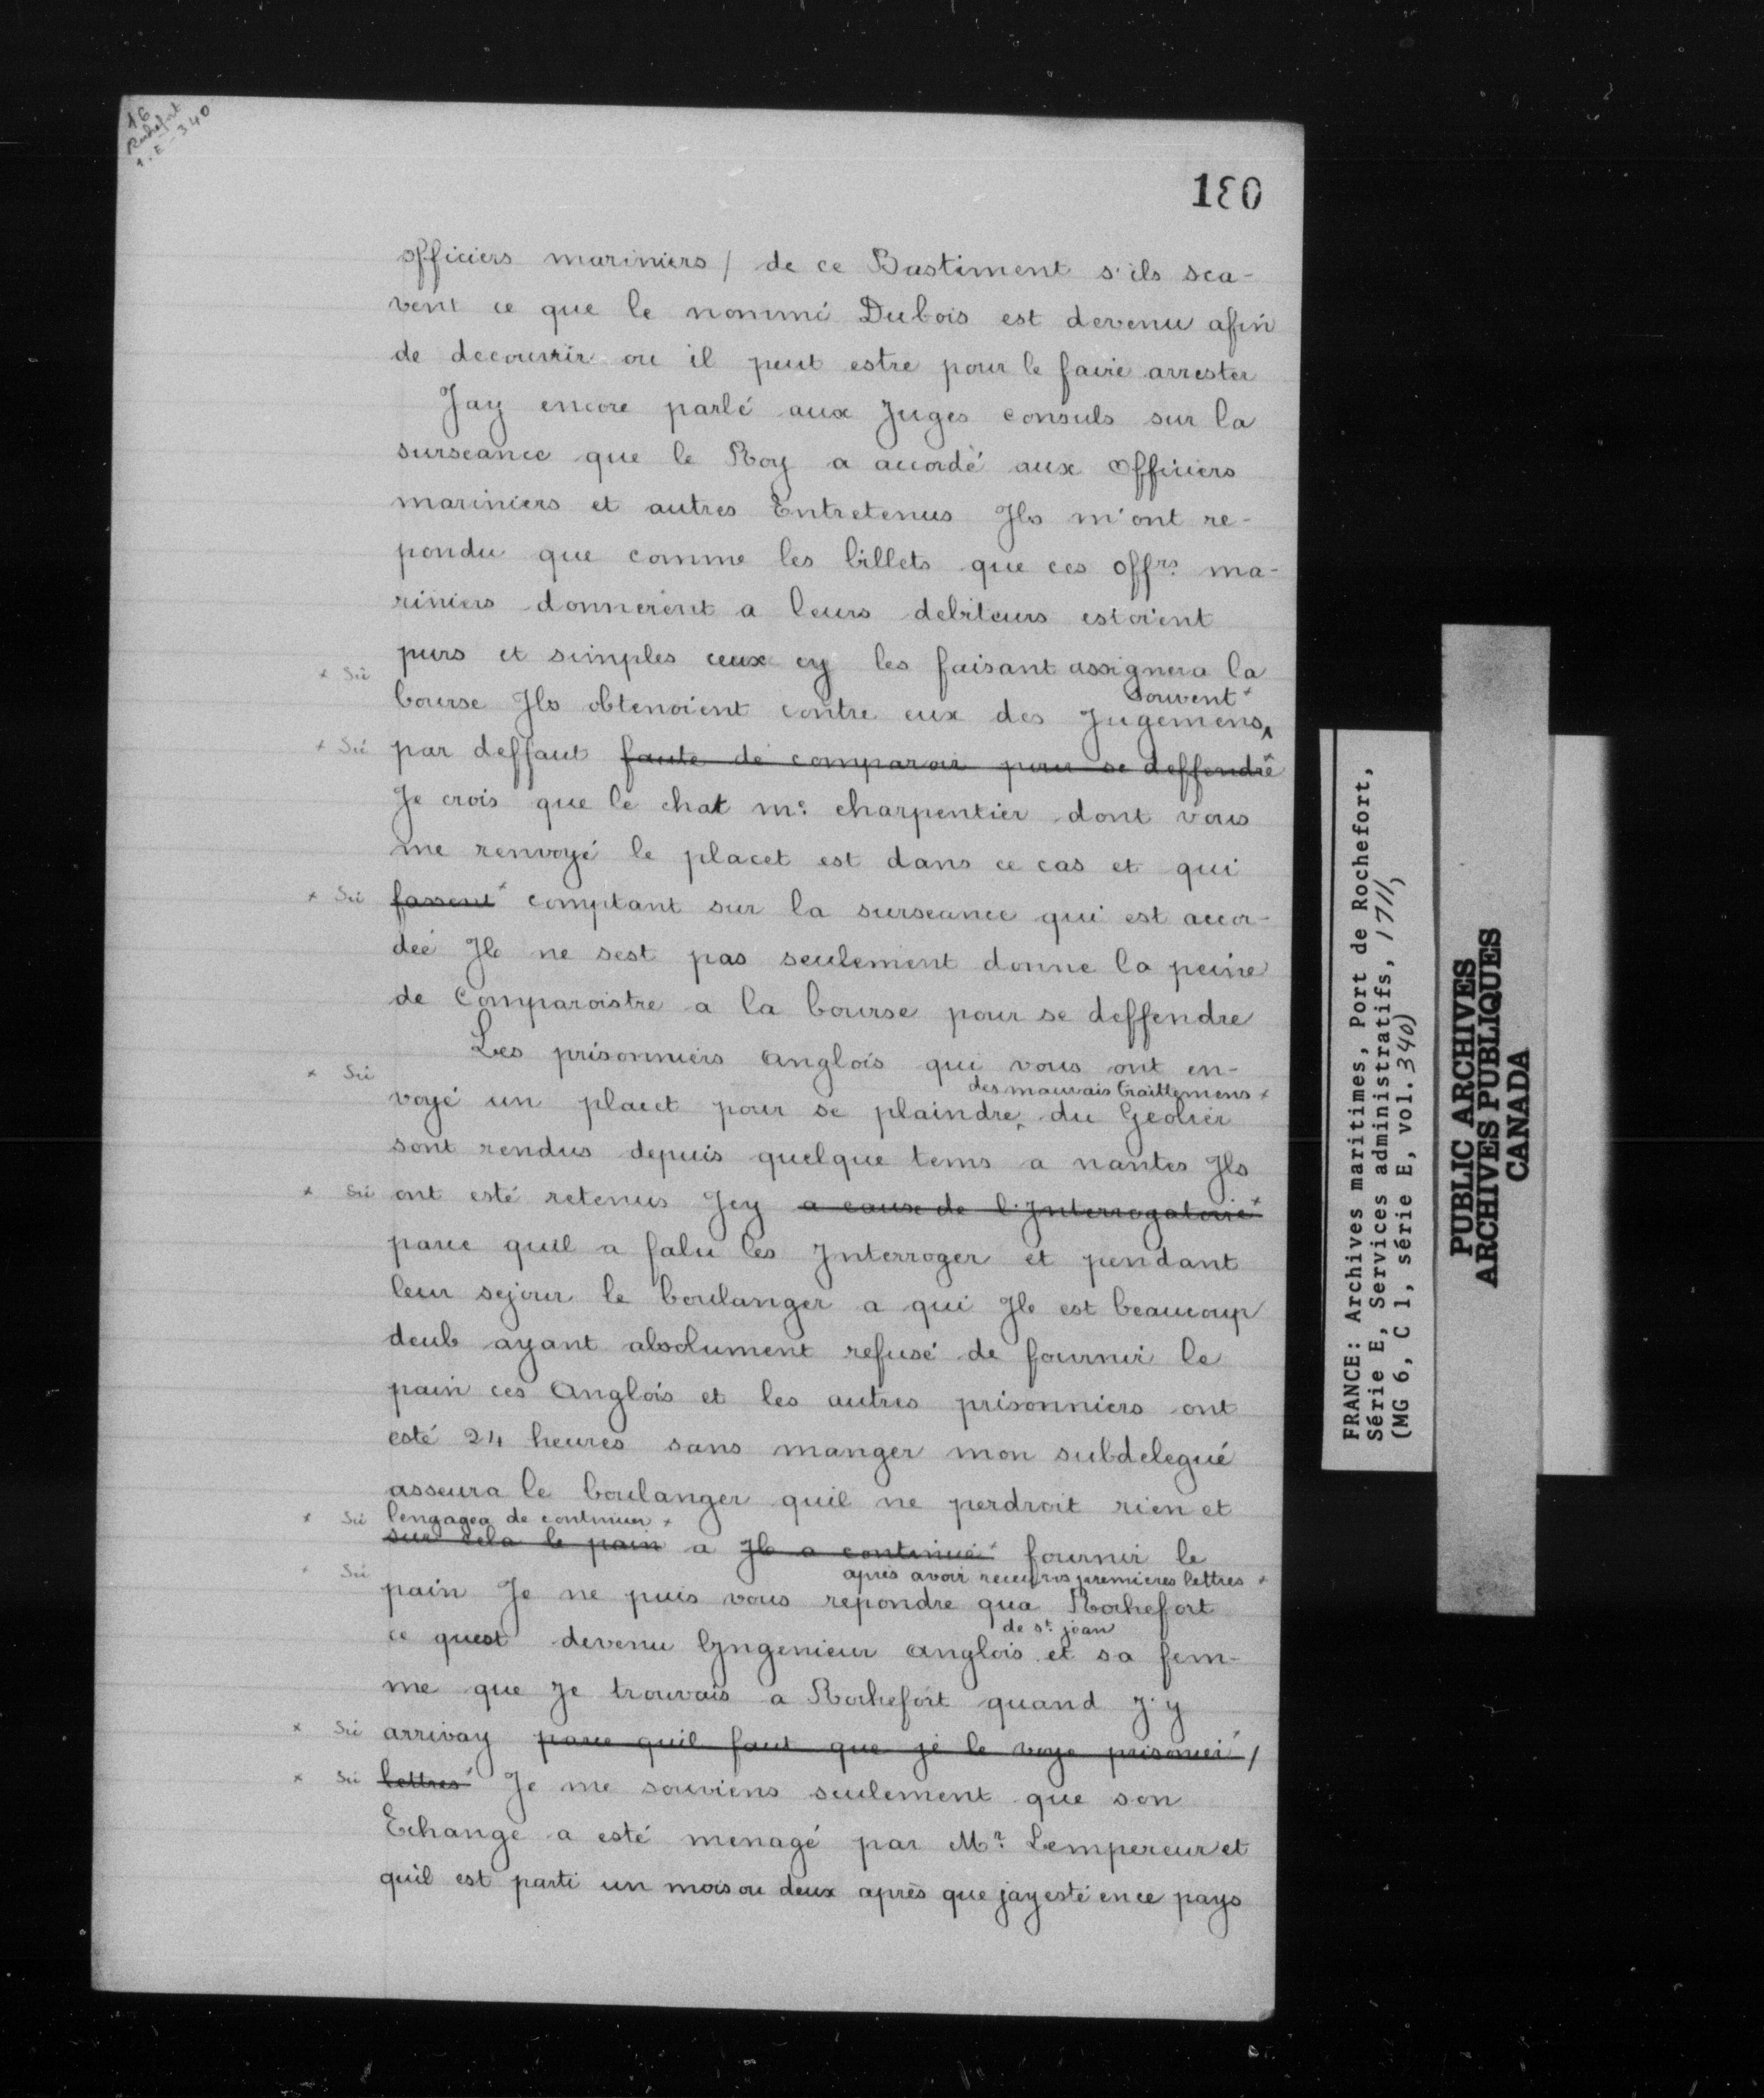 16
Rochefort
1.E-340
180
officiers mariniers / de ce Bastiment s'ils sca-
vent ce que le nommé Dubois est devenu afin
de decouvrir ou il peut estre pour le faire arrester
Jay encore parlé aux Juges consuls sur la
surseance que le Roy a accordé aux officiers
mariniers et autres Entretenus Ils m'ont re-
pondu que comme les billets que ces offrs. ma-
riniers donnerent a leurs debiteurs estoient
purs et simples ceux cy les faisant assigner a la
x Sic
souvent x
bourse Ils obtenoient contre eux des Jugemens
x Sic par deffaut faute de comparoir pour se deffendre
Je crois que le chat me. charpentier dont vous
me renvoyé le placet est dans ce cas et qui
x Sic fassent x comptant sur la surseance qui est accor-
dée Il ne sest pas seulement donne la peine
de Comparoistre a la bourse pour se deffendre
Les prisonniers anglois qui vous ont en-
x Sic
des mauvais traittemens x
voyé un placet pour se plaindre du Geolier
sont rendus depuis quelque tems a nantes Ils
x Sic ont esté retenus Jcy a cause de l'Jnterrogatoire x
parce quil a falu les Jnterroger et pendant
leur sejour le boulanger a qui Il est beaucoup
deub ayant absolument refusé de fournir le
pain ces Anglois et les autres prisonniers ont
esté 24 heures sans manger mon subdelegué
asseura le boulanger quil ne perdroit rien et
x Sic lengagea de continuer x
sur cela le pain a Il a continué x fournir le
x Sic
après avoir receu vos premieres lettres x
pain Je ne puis vous repondre qua Rochefort
de st. jean
ce quest devenu lJngenieur anglois et sa fem-
me que Je trouvais a Rochefort quand J'y
x Sic arrivay parce quil faut que je le voye prisonié /
x Sic lettres x Je me souviens seulement que son
Echange a esté menagé par Mr. Lempereur et
quil est parti un mois ou deux après que jay esté en ce pays
FRANCE: Archives maritimes, Port de Rochefort,
Série E, Services administratifs, 1711,
(MG 6, C 1, série E, vol. 340)
PUBLIC ARCHIVES
ARCHIVES PUBLIQUES
CANADA